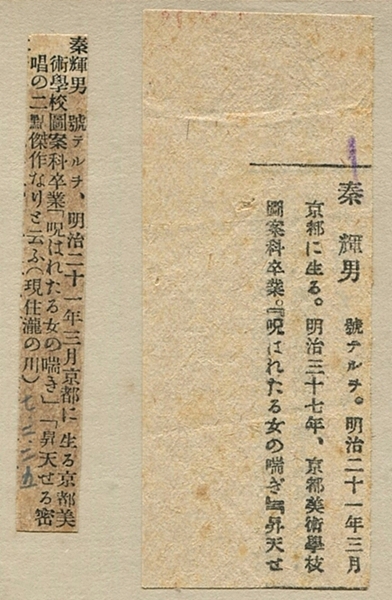 秦輝男 號テルヲ。明治二十一年三月
京都に生る。明治三十七年、京都美術學校
圖案科卒業。『呪はれたる女の喘ぎ』『昇天せ
秦輝男 號テルヲ、明治二十一年三月京都に生る京都美
術學校圖案科卒業「呪はれたる女の喘き」「昇天せる密
唱の二點傑作なりと云ふ(現住瀧の川)